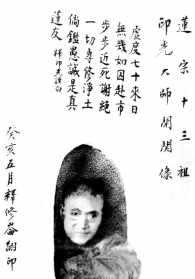 蓮宗十三祖
印光大師閉關像
虛度七十來日
無幾如囚赴市
步步近死謝絕
一切專修淨土
倘鑑愚誠是真
蓮友
釋印光謹白
癸亥五月釋修